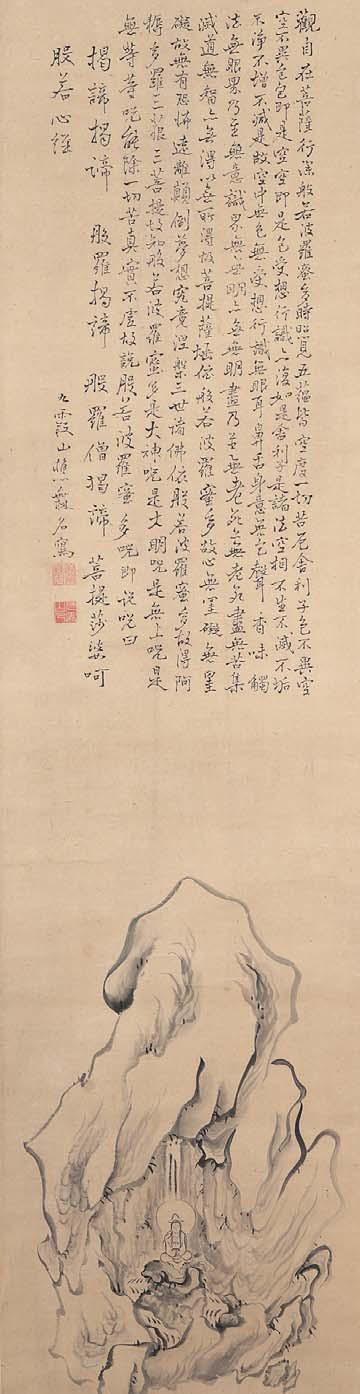 觀自在菩薩行深般若波羅蜜多時照見五蘊皆空度一切苦厄舍利子色不異空
空不異色色即是空空即是色受想行識亦復如是舍利子是諸法空相不生不滅不垢
不淨不增不減是故空中無色無受想行識無眼耳鼻舌身意無色聲香味觸
法無眼界乃至無意識界無無明亦無無明盡乃至無老死亦無老死盡無苦集
滅道無智亦無得以無所得故菩提薩埵依般若波羅蜜多故心無罣礙無罣
礙故無有恐怖遠離顛倒夢想究竟涅槃三世諸佛依般若波羅蜜多故得阿
耨多羅三藐三菩提故知般若波羅蜜多是大神呪是大明呪是無上呪是
無等等呪能除一切苦真實不虛故說般若波羅蜜多呪即說呪曰
揭諦揭諦 般羅揭諦 般羅僧揭諦 菩提莎婆呵
般若心經
九霞山樵無名寫